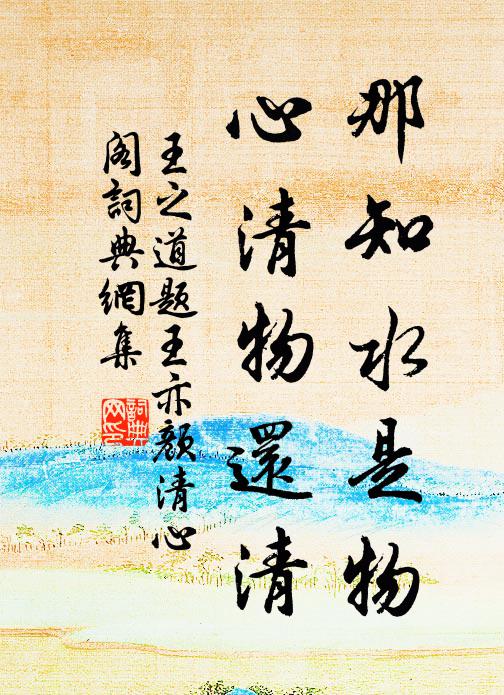 那知水是物
心清物還清
王之道題王亦顏清心
閣詞典網集
詞典
网印